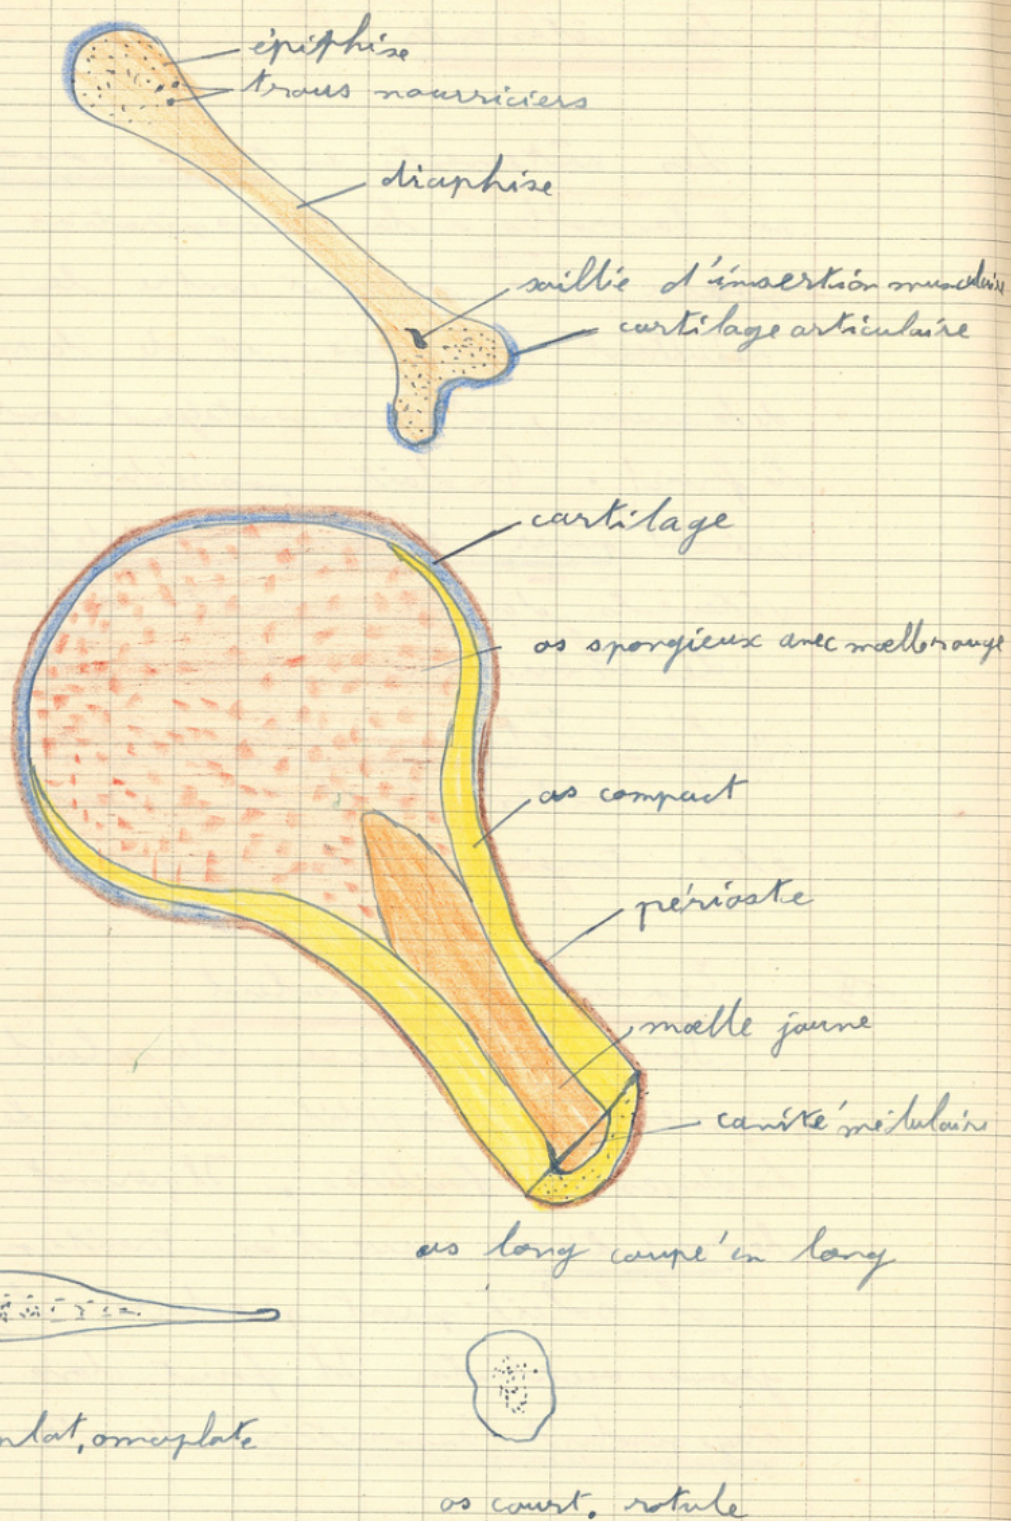 épiphise
trous nourriciers
diaphise
saillie d'insertion musculaire
cartilage articulaire
cartilage
os spongieux avec moelle rouge
os compact
périoste
moelle jaune
cavité médulaire
os long coupé en long
plat, omoplate
os court. rotule